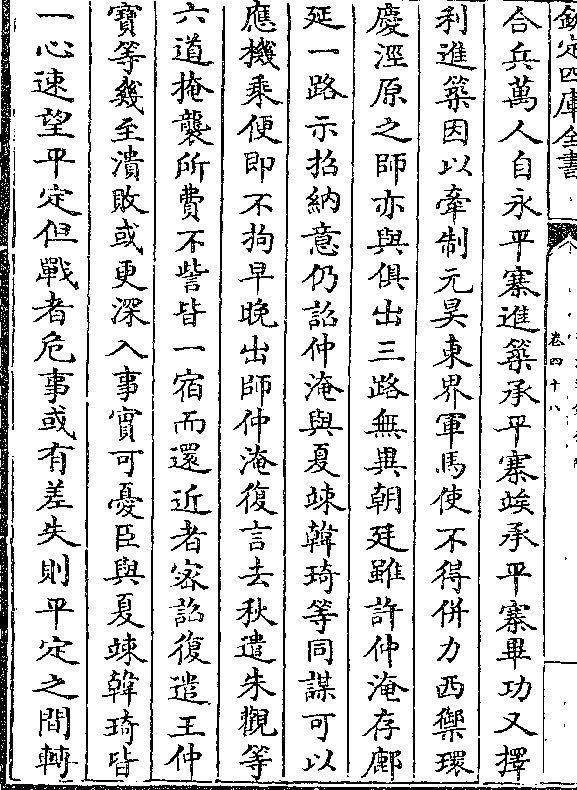 欽定四庫全書
卷四十八
合兵萬人自永平寨進築承平寨竢承平寨畢功又擇
利進築因以牽制元昊東界軍馬使不得併力西禦環
慶涇原之師亦與俱出三路無異朝廷雖許仲淹存鄜
延一路示招納意仍詔仲淹與夏竦韓琦等同謀可以
應機乘便即不拘早晚出師仲淹復言去秋遣朱觀等
六道掩襲所費不訾皆一宿而還近者密詔復遣王仲
寶等幾至潰敗或更深入事實可憂臣與夏竦韓琦皆
一心速望平定但戰者危事或有差失則平定之間轉